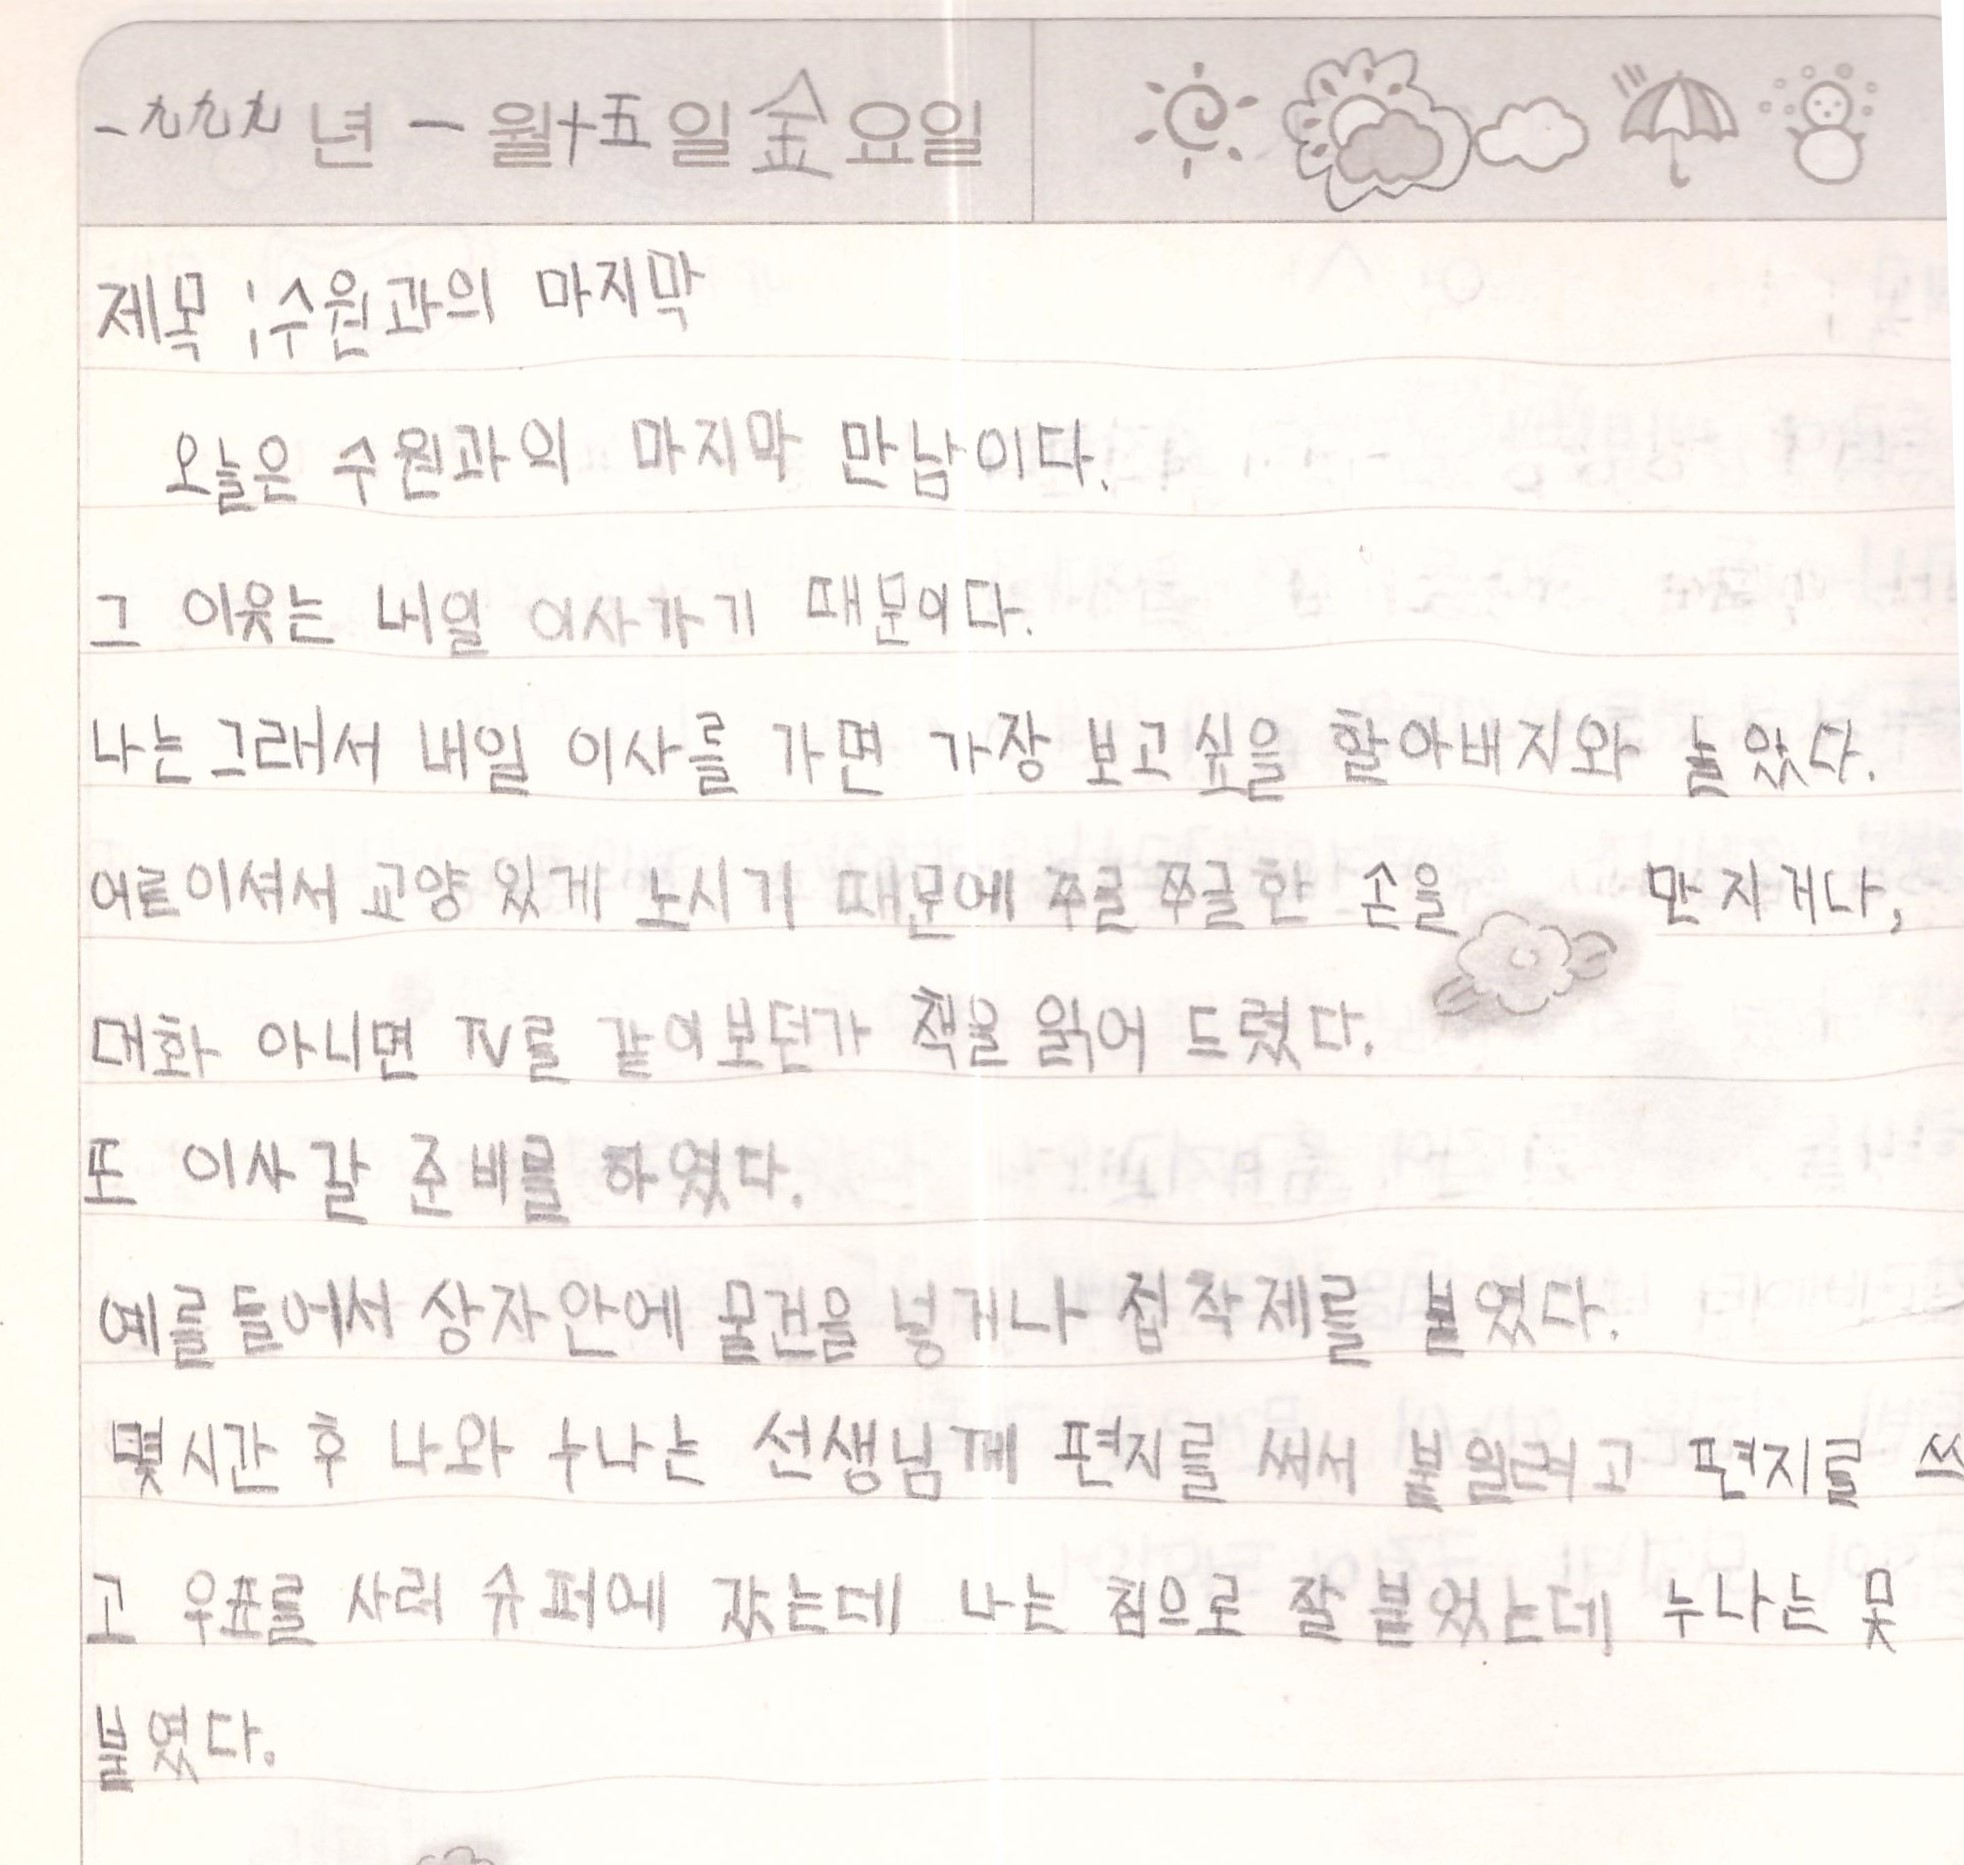 一九九九년 一월十五일金요일
제목 : 수원과의 마지막
오늘은 수원과의 마지막 만남이다.
그 이웃는 내일 이사가기 때문이다.
나는 그래서 내일 이사를 가면 가장 보고싶을 할아버지와 놀았다.
어른이셔서 교양 있게 노시기 때문에 주글쭈글한 손을 만지거나,
대화 아니면 TV를 같이보던가 책을 읽어 드렸다.
또 이사갈 준비를 하였다.
예를들어서 상자안에 물건을 넣거나 접착제를 붙였다.
몇시간 후 나와 누나는 선생님께 편지를 써서 붙일려고 편지를 쓰
고 우표를 사러 슈퍼에 갔는데 나는 침으로 잘 붙였는데 누나는 못
붙였다.